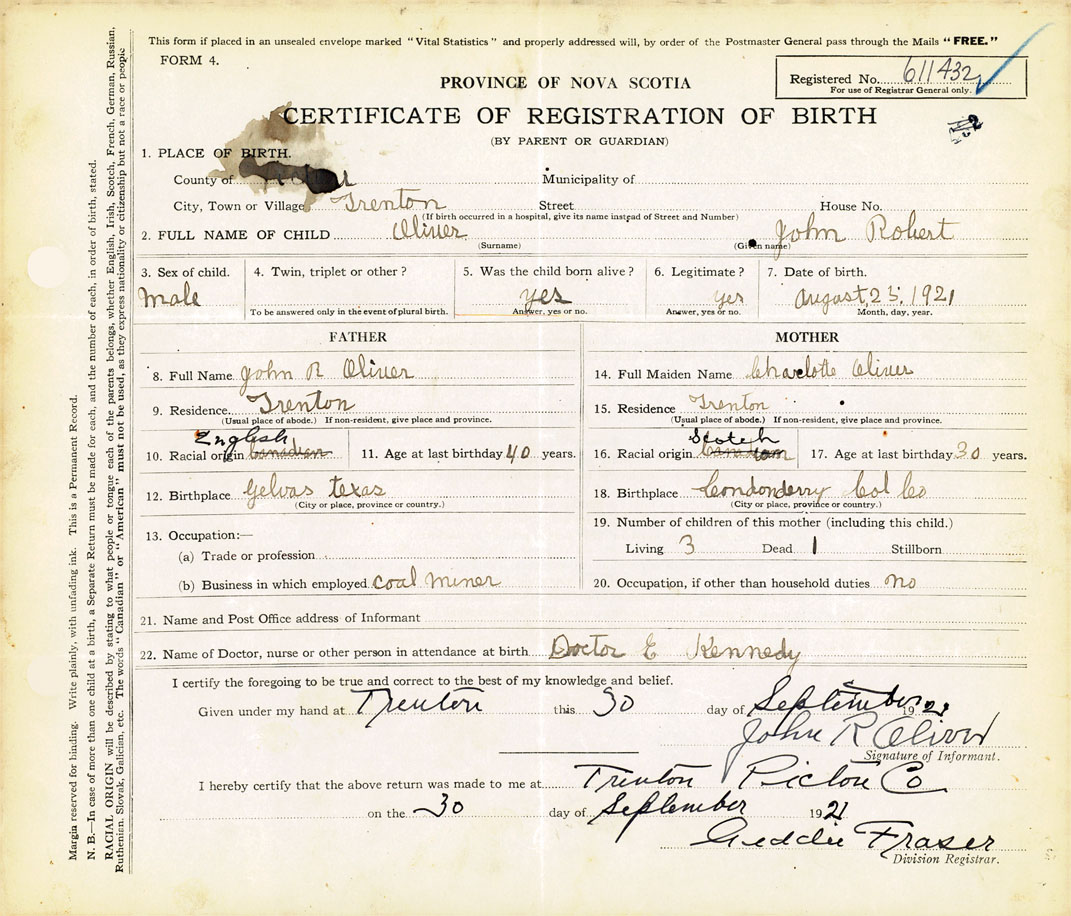 This form if placed in an unsealed envelope marked "Vital Statistics" and properly addressed will, by order of the Postmaster General pass through the Mails "FREE."
FORM 4.
Registered No. 611432
For use of Registrar General only.
PROVINCE OF NOVA SCOTIA
CERTIFICATE OF REGISTRATION OF BIRTH
(BY PARENT OR GUARDIAN)
1. PLACE OF BIRTH.
County of Municipality of
City, Town or Village Trenton Street House No.
(If birth occurred in a hospital, give its name instead of Street and Number)
2. FULL NAME OF CHILD Oliver John Robert
(Surname) (Given name)
3. Sex of child. 4. Twin, triplet or other? 5. Was the child born alive? 6. Legitimate? 7. Date of birth.
Male yes yes August, 25, 1921
To be answered only in the event of plural birth. Answer, yes or no. Answer, yes or no. Month, day, year.
FATHER
8. Full Name John R Oliver
9. Residence Trenton
(Usual place of abode.) If non-resident, give place and province.
English
10. Racial origin Canadian 11. Age at last birthday 40 years.
12. Birthplace Gelvas texas
(City or place, province or country.)
13. Occupation:—
(a) Trade or profession
(b) Business in which employed coal miner
MOTHER
14. Full Maiden Name Charlotte Oliver
15. Residence Trenton
(Usual place of abode.) If non-resident, give place and province.
Scotch
16. Racial origin Canadian 17. Age at last birthday 30 years.
18. Birthplace Londonderry Col Co
(City or place, province or country.)
19. Number of children of this mother (including this child.)
Living 3 Dead 1 Stillborn
20. Occupation, if other than household duties no
21. Name and Post Office address of Informant
22. Name of Doctor, nurse or other person in attendance at birth Doctor E Kennedy
I certify the foregoing to be true and correct to the best of my knowledge and belief.
Given under my hand at Trenton this 30 day of September 1921
John R Oliver
Signature of Informant.
I hereby certify that the above return was made to me at Trenton Pictou Co
on the 30 day of September 1921
Geddie Fraser
Division Registrar.
Margin reserved for binding. Write plainly, with unfading ink. This is a Permanent Record.
N. B.—In case of more than one child at a birth, a Separate Return must be made for each, and the number of each, in order of birth, stated.
RACIAL ORIGIN will be described by stating to what people or tongue each of the parents belongs, whether English, Irish, Scotch, French, German, Russian,
Ruthenian, Slovak, Galician, etc. The words "Canadian" or "American" must not be used, as they express nationality or citizenship but not a race or people